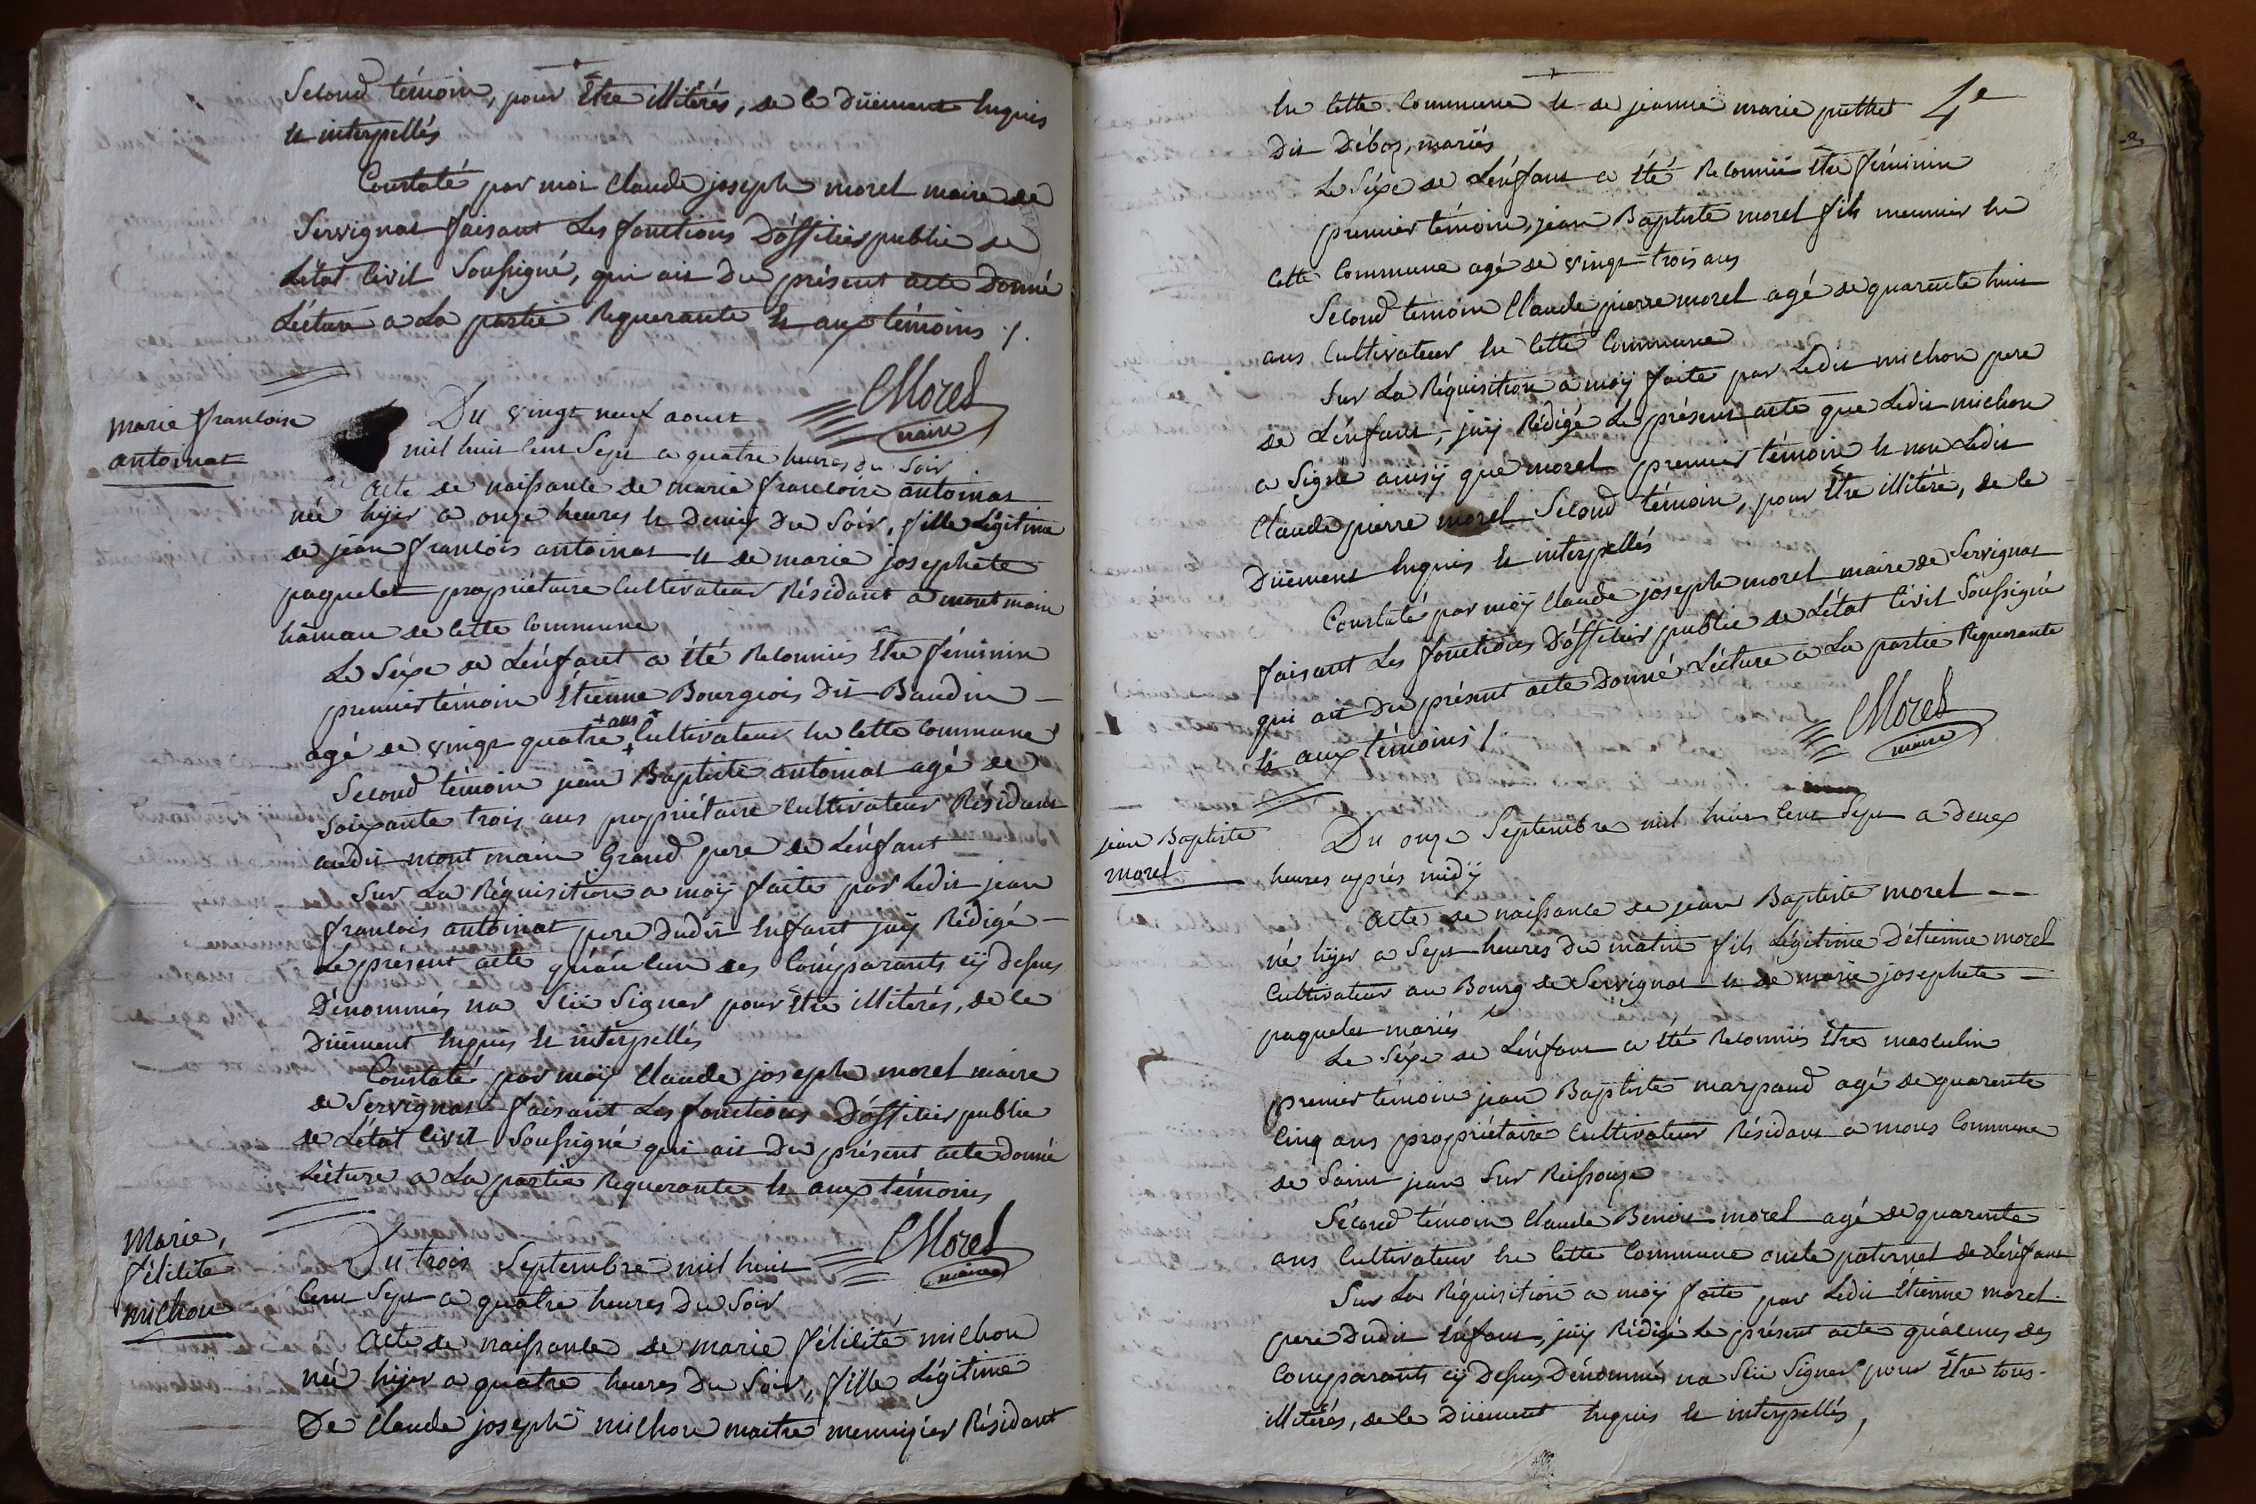 Second témoin, pour Etre illitérés, de le Düement Enquis
et interpellés
Constaté par moi Claude joseph morel maire de
Servignat faisant Les fonctions D'officier public de
L'état Civil Soussigné, qui ait Du présent acte Donné
Lécture a La partie Requerante Et aux témoins ./.
CMorel
maire
marie francoise
antoinat
Du vingt neuf aoust
mil huit Cent Sept a quatre heures du Soir
Acte de naissance de marie francoise antoinat
née hÿer a onze heures Et Demie Du Soir, fille Légitime
de jean francois antoinat Et de marie josephete
paquelet propriétaire Cultivateur Résidant a mont main
hâmau de Cette Commune
Le Séxe de L'énfant a Eté Reconnüs Etre féminin
premier témoin Etienne Bourgeois Dit Baudin
agé de vingt quatre + ans + Cultivateur En Cette Commune
Second témoin jean Baptiste antoinat agé de
Soixante trois ans propriétaire Cultivateur Résidant
audit mont main Grand pere de L'énfant
Sur La Réquisition a moÿ faite par Ledit jean
francois antoinat pere Dudit Enfant j'aÿ Rédigé
Le présent acte qu'aucun des Comparants cÿ Dessus
Dénommés na Sçü Signer pour Etre illiterés, de le
Düement Enquis Et interpellés
Constaté par moÿ Claude joseph morel maire
de Servignat faisant Les fonctions D'officier public
de L'état Civil Soussigné qui ait Du présent acte donné
Lécture a La partie Requerante Et aux témoins
CMorel
maire
Marie,
félicité
michon
Du trois Septembre mil huit
Cent Sept a quatre heures Du Soir
Acte de naissance de marie félicité michon
née hÿer a quatre heures Du Soir, fille Légitime
De Claude joseph michon maitre meunier Résidant
4e
En Cette Commune Et de jeanne marie puthet
Dit Déboz, mariés
Le Séxe de L'énfant a Eté Reconnü Etre féminin
premier témoin, jean Baptiste morel fils meunier En
Cette Commune agé de vingt-trois ans
Second témoin Claude pierre morel agé de quarente huit
ans Cultivateur En Cette Commune
Sur La Réquisition a moÿ faite par Ledit michon pere
de L'énfant, j'aÿ Rédigé Le présent acte que Ledit michon
a Signé ainsÿ que morel premier témoin Et non Ledit
Claude pierre morel Second témoin, pour Etre illitéré, de le
Düement Enquis Et interpellés
Constaté par moÿ Claude joseph morel maire de Servignat
faisant Les fonctions D'officier public de L'état Civil Soussigné
qui ait Du présent acte Donné Lécture a La partie Requerante
Et aux témoins ./.
CMorel
maire
jean Baptiste
morel
Du onze Septembre mil huit Cent Sept a deux
heures aprés midÿ
Acte de naissance de jean Baptiste morel
né hÿer a Sept heures Du matin fils Légitime D'étienne morel
Cultivateur au Bourg de Servignat Et de marie josephete
paquelet mariés
Le Séxe de L'énfant a Eté Reconnüs Etre masculin
premier témoin jean Baptiste marpaud agé de quarente
Cinq ans propriétaire Cultivateur Résidant a mons Commune
de Saint jean Sur Reissouze
Sécond témoin Claude Benoit morel agé de quarente
ans Cultivateur En Cette Commune oncle paternel de L'énfant
Sur La Réquisition a moÿ faite par Ledit Etienne morel
pere Dudit Enfant, j'aÿ Rédigé Le présent acte qu'aucuns des
Comparants cÿ Dessus Dénommés na Sçü Signer pour Etre tous
illitérés, de le Düement Enquis Et interpellés,